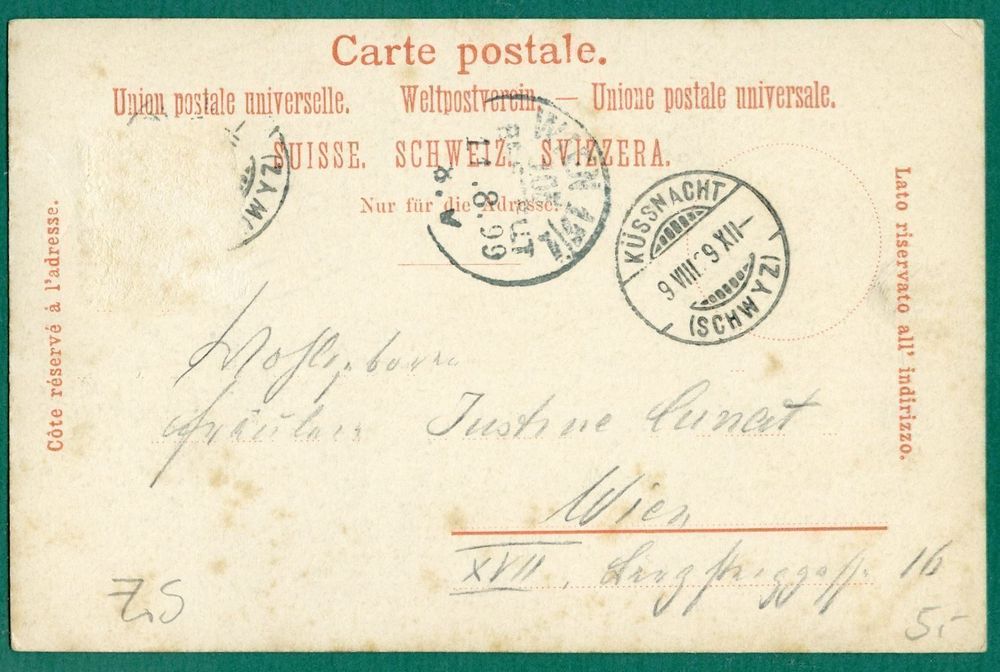 Carte postale.
Union postale universelle. Weltpostverein. — Unione postale universale.
SUISSE. SCHWEIZ. SVIZZERA.
Nur für die Adresse.
Côte réservé à l'adresse.
Lato riservato all' indirizzo.
(ZAMH
WIEN
11.8.99
8.V
KÜSSNACHT
9 VIII 9 XII–
(SCHWYZ)
Wohlgeboren
Fräulein Justine Cunat
Wien
XVII, 16
ZS
5.-